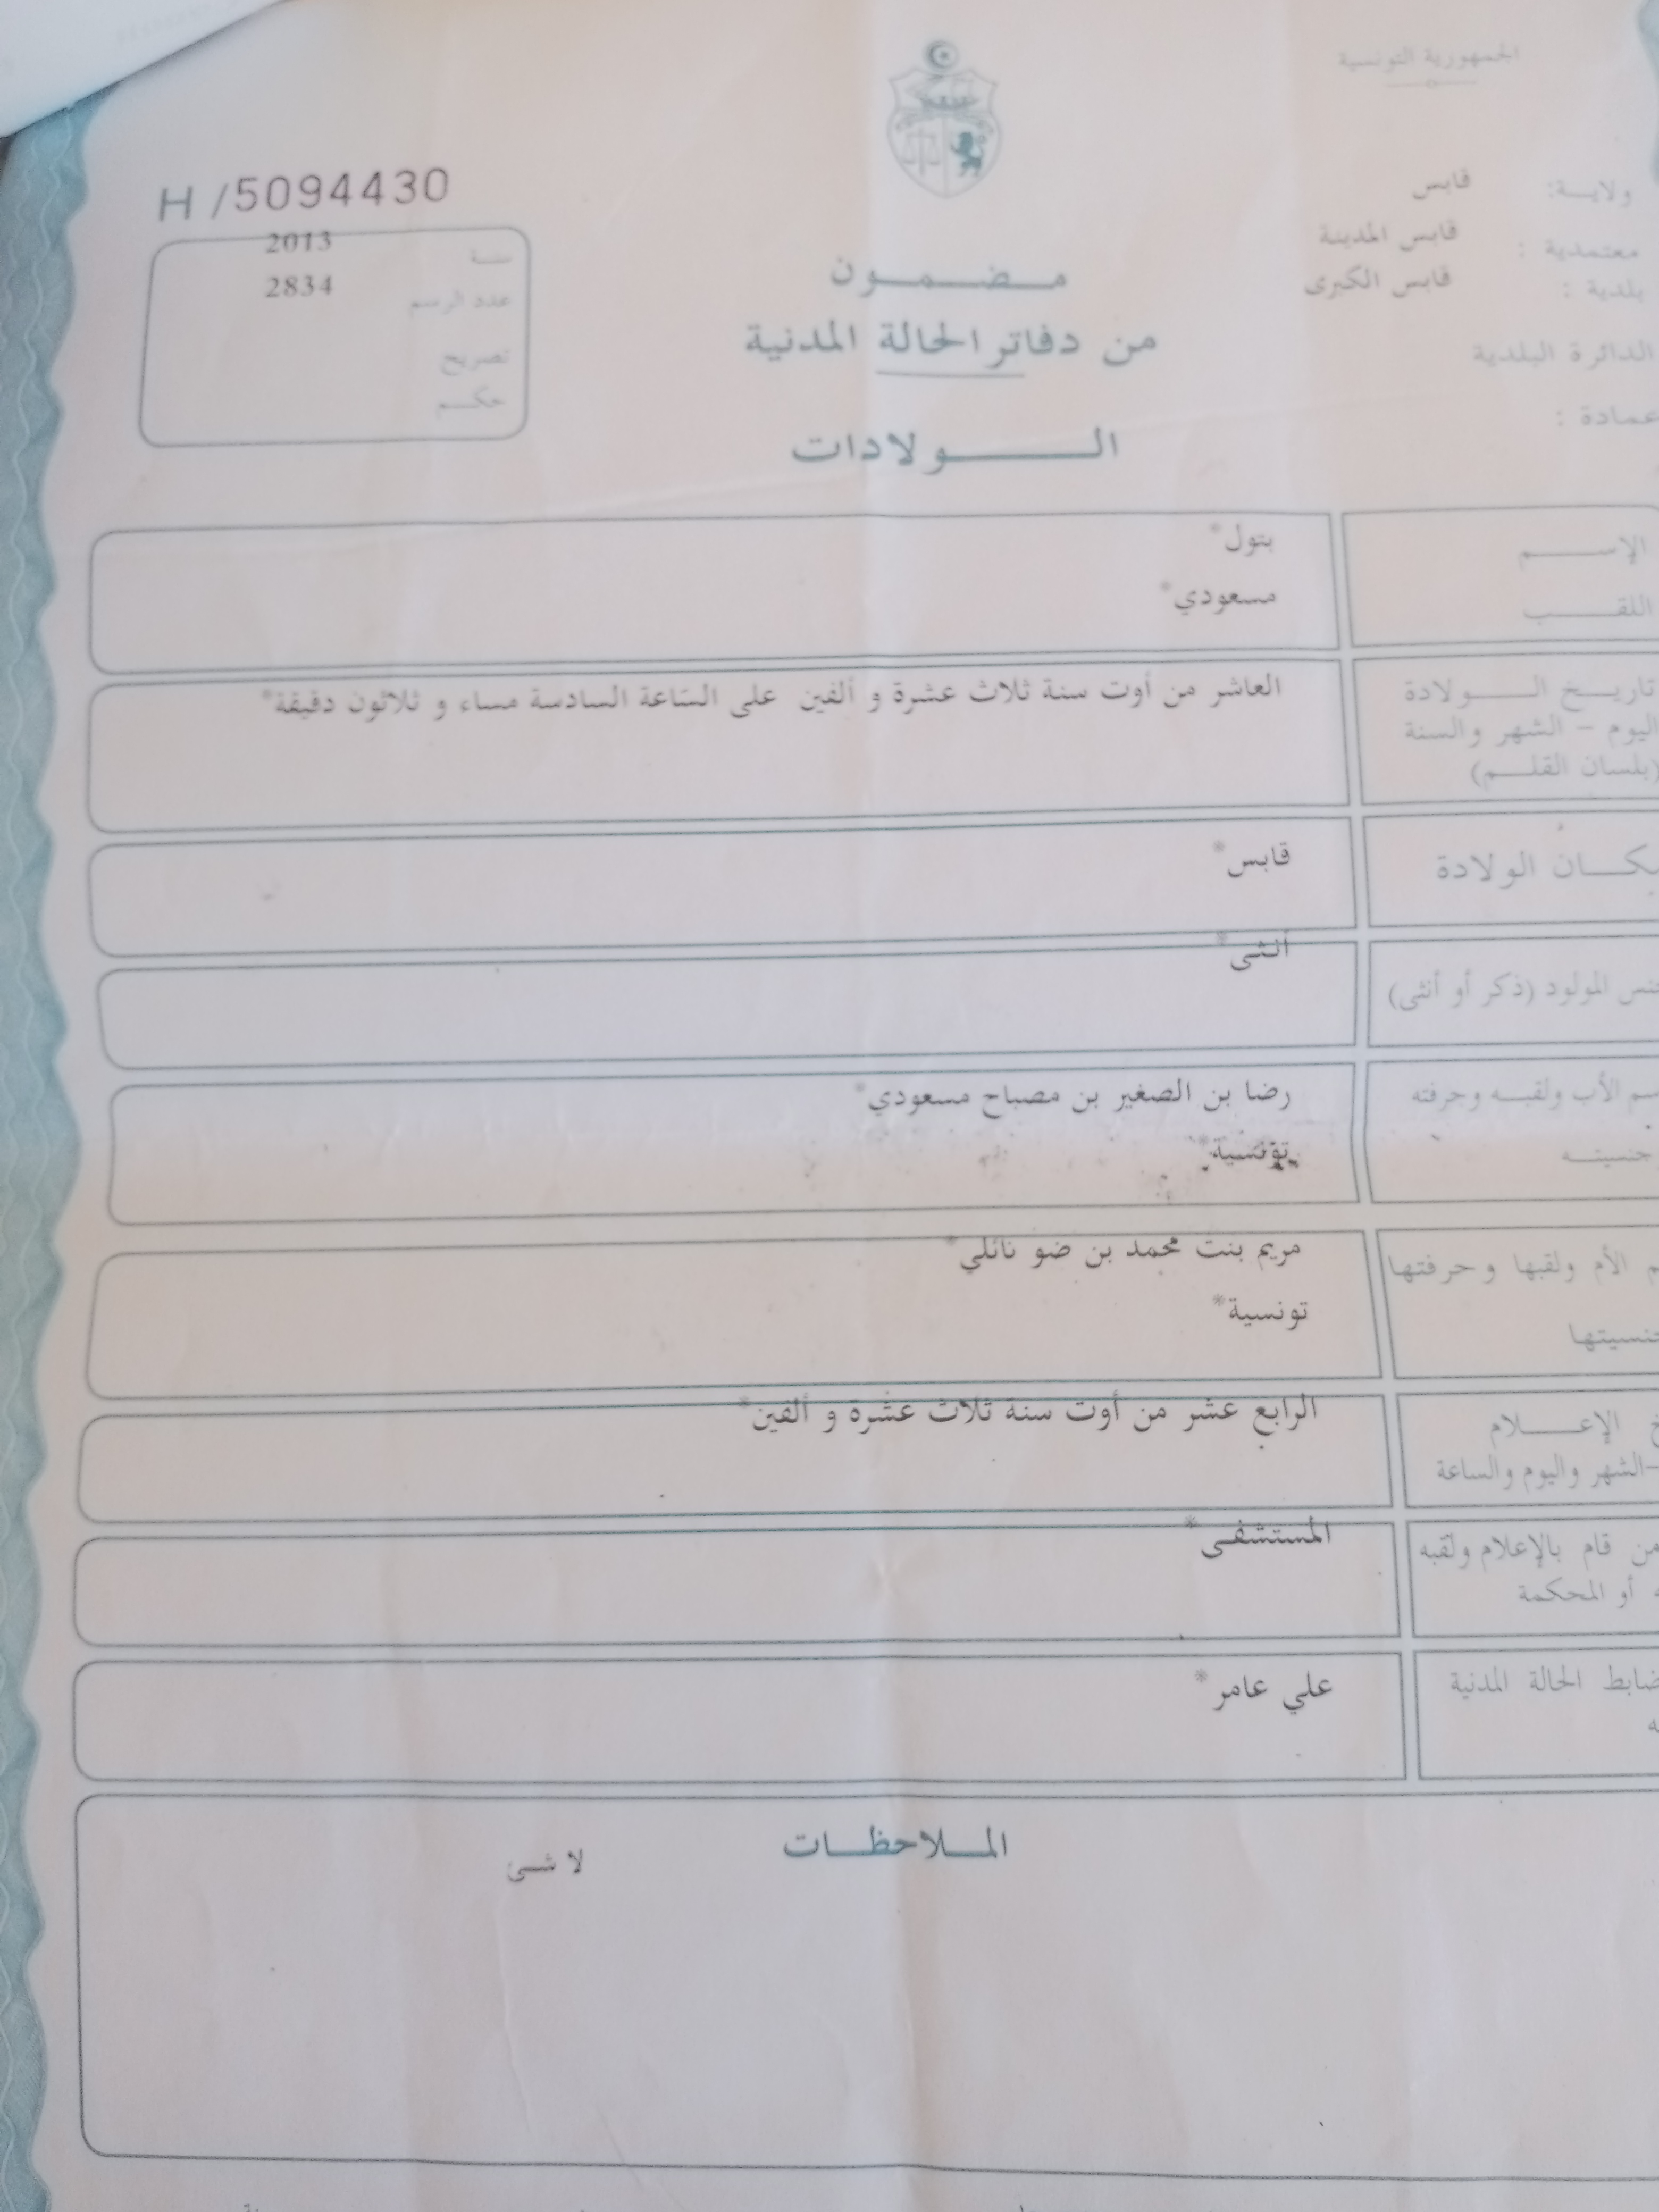 الجمهورية التونسية
ولايــة: قابس
معتمدية : قابس المدينة
بلدية : قابس الكبرى
الدائرة البلدية
عمادة :
H /5094430
سنة 2013
عدد الرسم 2834
تصريح
حكم
مضمون
من دفاتر الحالة المدنية
الولادات
الإسم بتول*
اللقب مسعودي*
تاريخ الولادة العاشر من أوت سنة ثلاث عشرة و ألفين على الساعة السادسة مساء و ثلاثون دقيقة*
اليوم - الشهر والسنة
(بلسان القلم)
الولادة قابس*
أنثى*
المولود (ذكر أو أنثى)
الأب ولقبه وحرفته رضا بن الصغير بن مصباح مسعودي*
جنسيته تونسية*
الأم ولقبها وحرفتها مريم بنت محمد بن ضو نائلي*
تونسية*
الإعلام الرابع عشر من أوت سنة ثلاث عشرة و ألفين*
-الشهر واليوم والساعة
من قام بالإعلام ولقبه المستشفى*
أو المحكمة
ضابط الحالة المدنية علي عامر*
الملاحظات
لا شئ